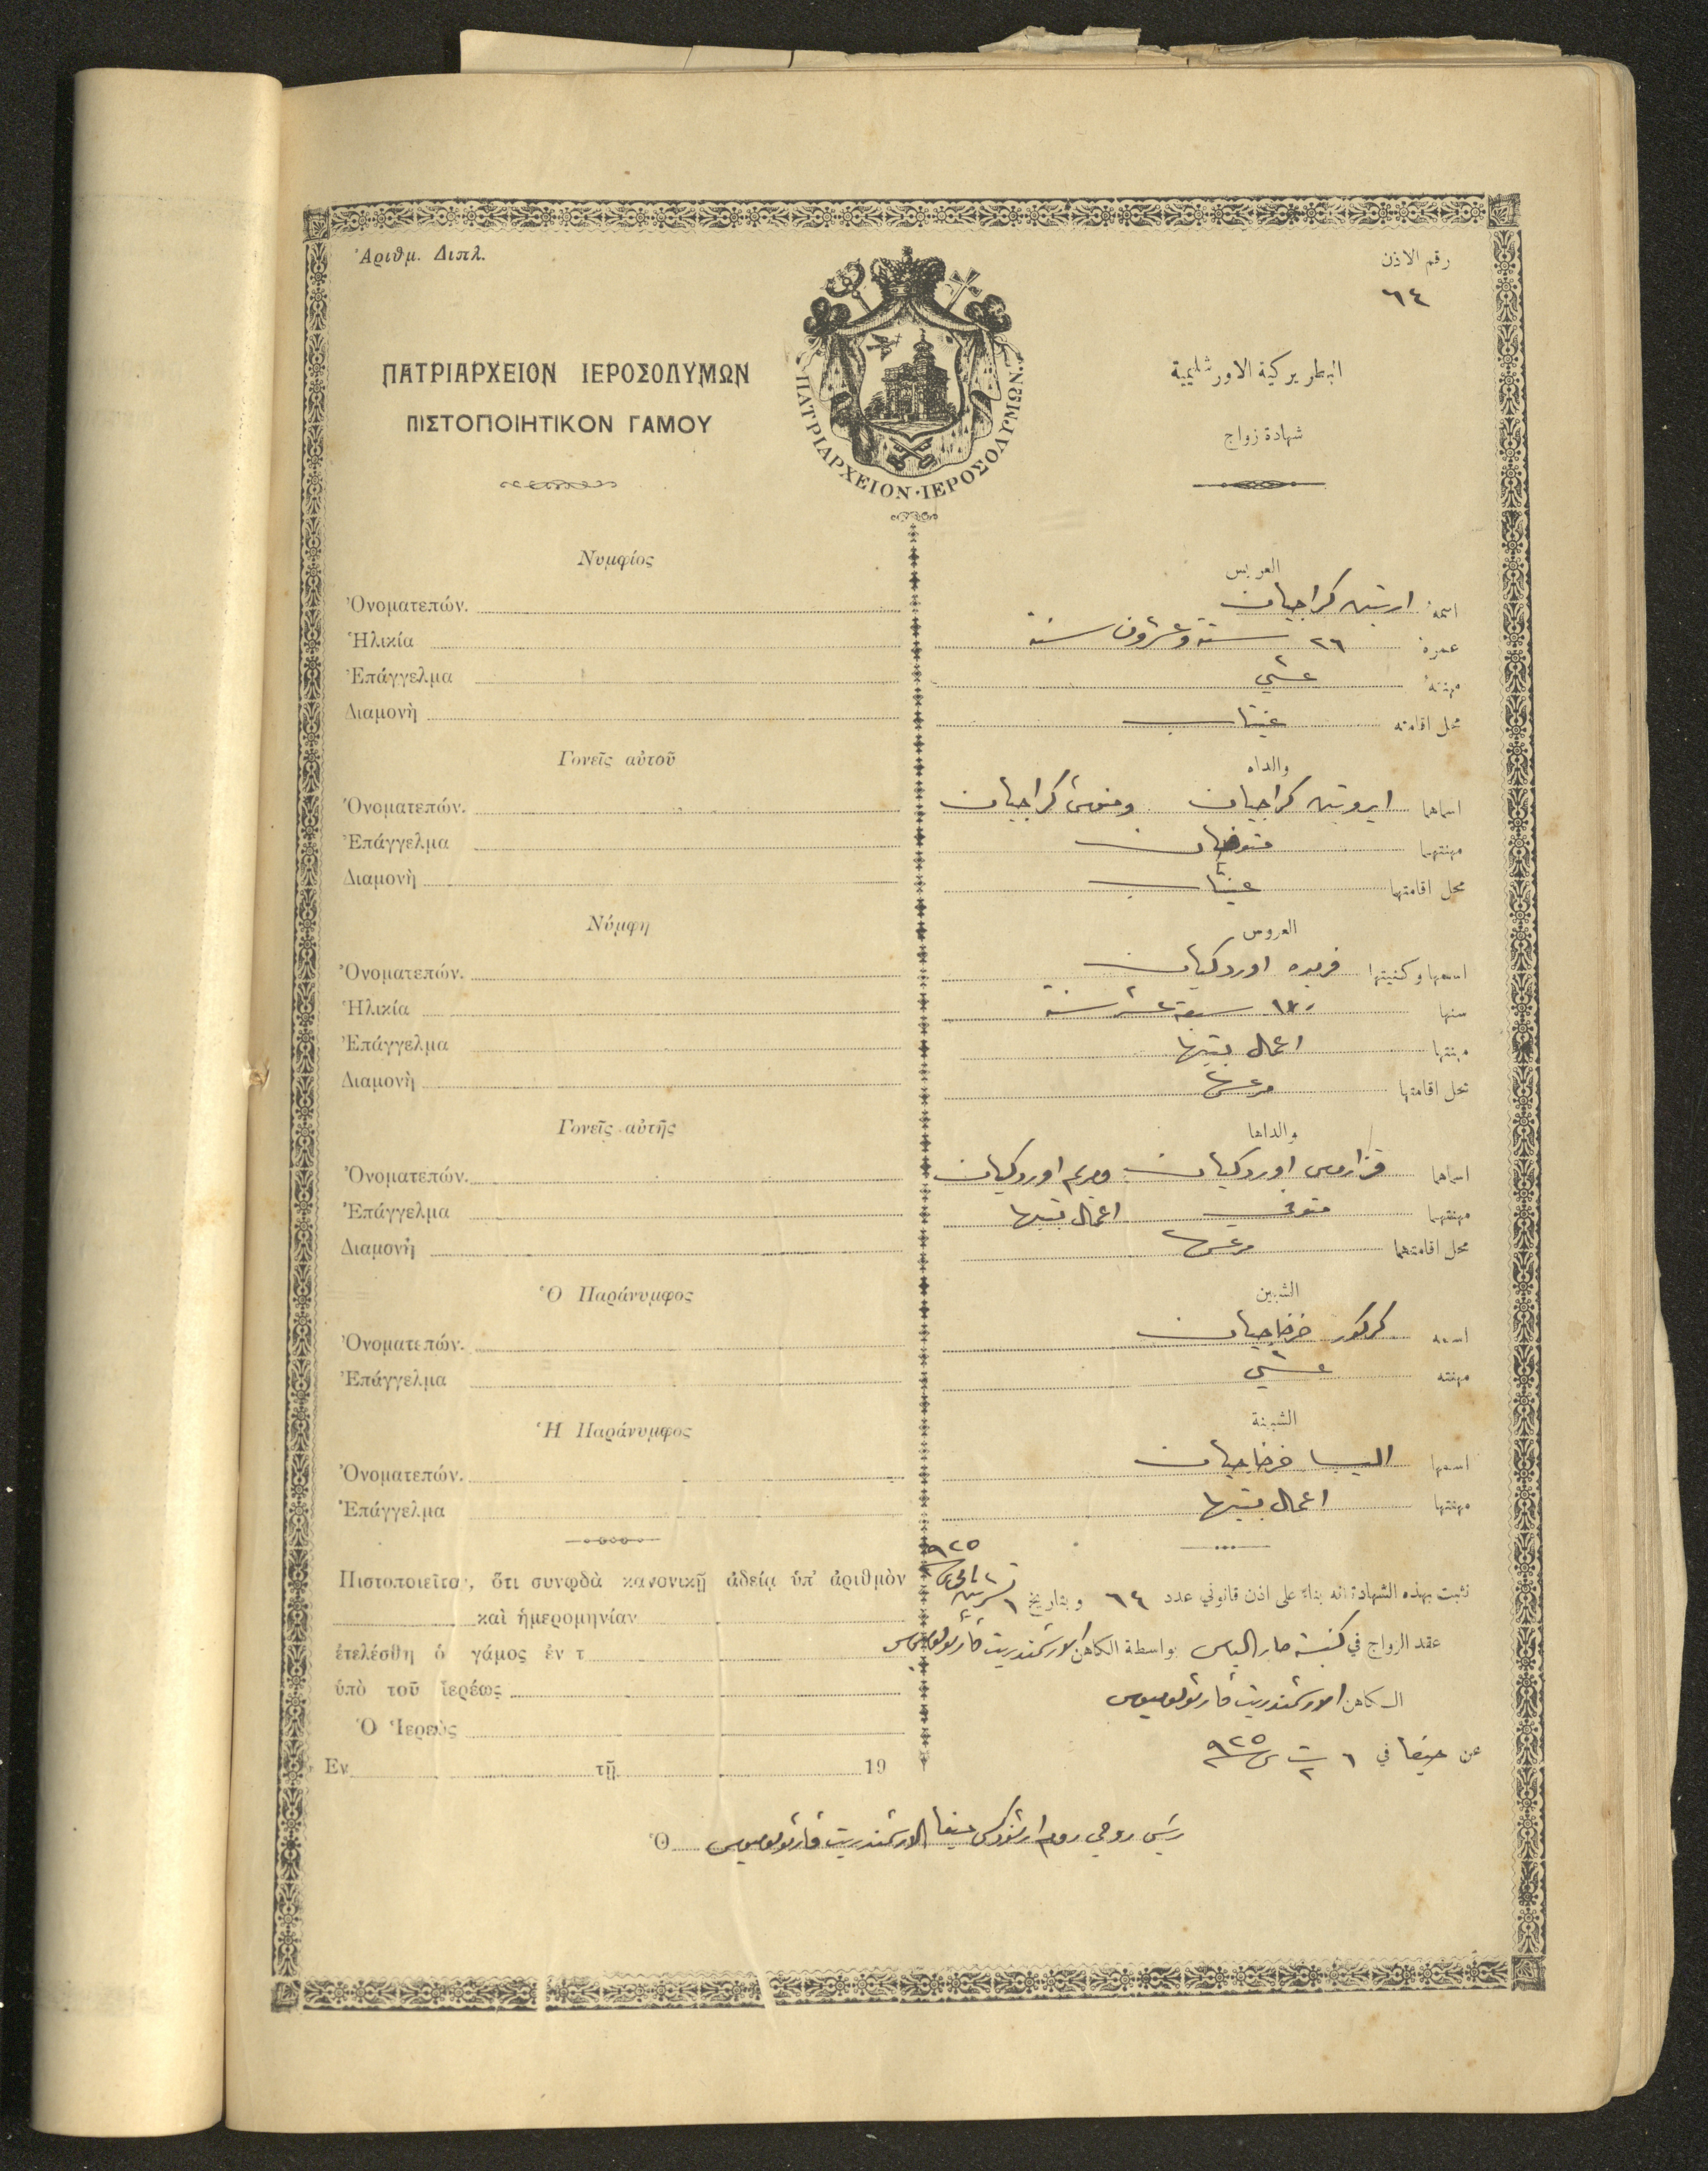 Ἀριθμ. Διπλ.
رقم الاذن
٦٤
ΠΑΤΡΙΑΡΧΕΙΟΝ ΙΕΡΟΣΟΛΥΜΩΝ
ΠΙΣΤΟΠΟΙΗΤΙΚΟΝ ΓΑΜΟΥ
ΠΑΤΡΙΑΡΧΕΙΟΝ·ΙΕΡΟΣΟΛΥΜΩΝ.
البطريركية الاورشليمية
شهادة زواج
Νυμφίος
Ὀνοματεπών.
Ἡλικία
Ἐπάγγελμα
Διαμονὴ
Γονεῖς αὐτοῦ
Ὀνοματεπών.
Ἐπάγγελμα
Διαμονὴ
Νύμφη
Ὀνοματεπών.
Ἡλικία
Ἐπάγγελμα
Διαμονὴ
Γονεῖς αὐτῆς
Ὀνοματεπών.
Ἐπάγγελμα
Διαμονὴ
Ὁ Παράνυμφος
Ὀνοματεπών.
Ἐπάγγελμα
Ἡ Παράνυμφος
Ὀνοματεπών.
Ἐπάγγελμα
Πιστοποιεῖται, ὅτι συνῳδὰ κανονικῇ ἀδείᾳ ὑπ' ἀριθμὸν
καὶ ἡμερομηνίαν
ἐτελέσθη ὁ γάμος ἐν τ
ὑπὸ τοῦ ἱερέως
Ὁ Ἱερεὺς
Ἐν τῇ 19
العريس
اسمه ارتين كراجيان
عمره ٢٦ ستة وعشرون سنة
مهنته عشي
محل اقامته عينتاب
والداه
اسماهما ايروتين كراجيان كراجيان
مهنتهما متوفيان
محل اقامتهما عينتاب
العروس
اسمها وكنيتها فريده اوردكيان
سنها ١٧ سبعة عشر سنة
مهنتها اعمال بيتها
محل اقامتها مرعش
والداها
اسماهما اوردكيان ومريم اوردكيان
مهنتهما متوفي اعمال بيتها
محل اقامتهما مرعش
الشبين
اسمه كركور خرخاجيان
مهنته عشي
الشبينة
اسمها اليسا خرخاجيان
مهنتها اعمال بيتها
نثبت بهذه الشهادة انه بناء على اذن قانوني عدد ٦٤ وبتاريخ ٦ تشرين ثاني ٩٢٥
عقد الزواج في كنيسة مار الياس بواسطة الكاهن الارشمندريت فارثولوميوس
الكاهن الارشمندريت فارثولوميوس
عن حيفا في ٦ ت٢ س ٩٢٥
Ὁ رئيس روحي روم ارثوذكس حيفا الارشمندريت فارثولوميوس